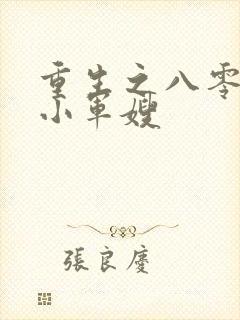 重生之八零
小軍嫂
張良慶